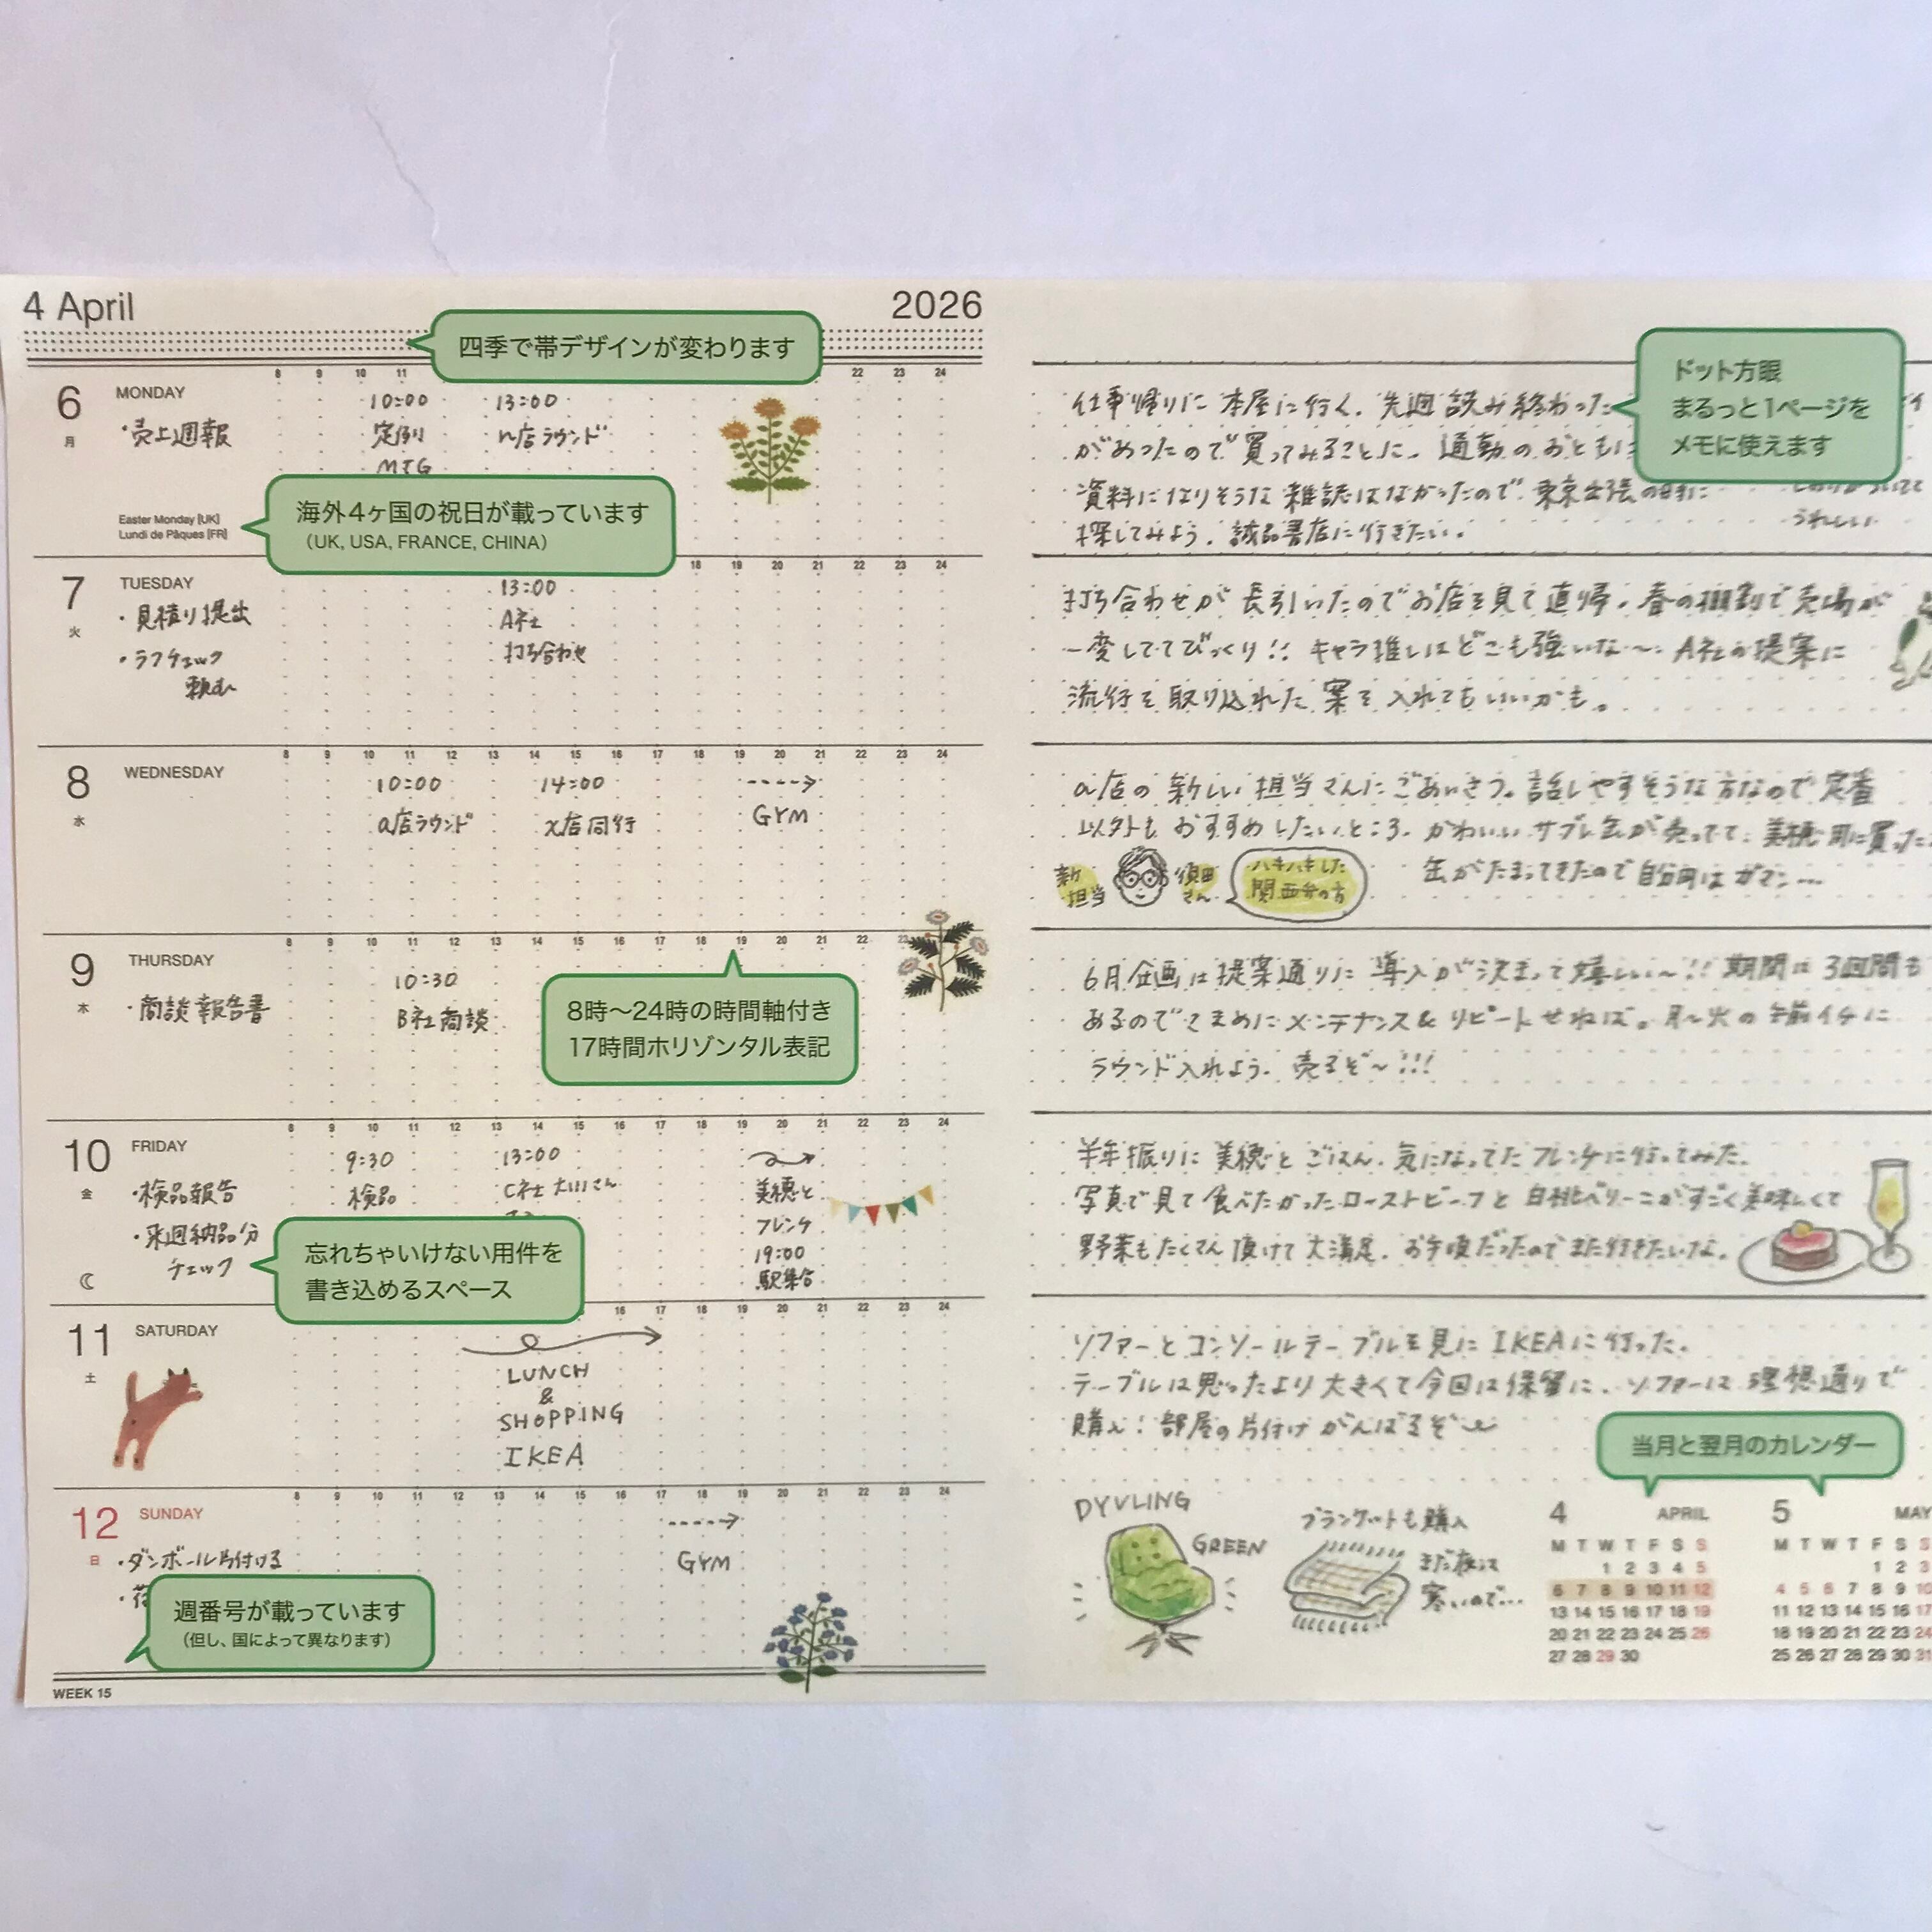 4 April
2026
四季で帯デザインが変わります
8 9 10 11 22 23 24
6 MONDAY
月
・売上週報
10:00
定例
MTG
13:00
n店ラウンド
Easter Monday [UK]
Lundi de Pâques [FR]
海外4ヶ国の祝日が載っています
(UK, USA, FRANCE, CHINA)
18 19 20 21 22 23 24
7 TUESDAY
火
・見積り提出
・ラフチェック
頼む
13:00
A社
打ち合わせ
8 9 10 11 12 13 14 15 16 17 18 19 20 21 22 23 24
8 WEDNESDAY
水
10:00
a店ラウンド
14:00
x店同行
GYM
8 9 10 11 12 13 14 15 16 17 18 19 20 21 22 23
9 THURSDAY
木
・商談報告書
10:30
B社商談
8時〜24時の時間軸付き
17時間ホリゾンタル表記
8 9 10 11 12 13 14 15 16 17 18 19 20 21 22 23 24
10 FRIDAY
金
・検品報告
・来週納品分
チェック
9:30
検品
13:00
C社 大川さん
美穂と
フレンチ
19:00
駅集合
忘れちゃいけない用件を
書き込めるスペース
16 17 18 19 20 21 22 23 24
11 SATURDAY
土
LUNCH
&
SHOPPING
IKEA
8 9 10 11 12 13 14 15 16 17 18 19 20 21 22 23 24
12 SUNDAY
日
・ダンボール片付ける
GYM
週番号が載っています
(但し、国によって異なります)
WEEK 15
ドット方眼
まるっと1ページを
メモに使えます
仕事帰りに本屋に行く。先週読み終わった
があったので買ってみることに。通勤のおともに
資料になりそうな雑誌はなかったので、東京出張の時に
探してみよう。誠品書店に行きたい。
うれしい
打ち合わせが長引いたのでお店を見て直帰。春の棚割で売場が
一変しててびっくり!! キャラ推しはどこも強いな〜。A社の提案に
流行を取り込れた案を入れてもいいかも。
a店の新しい担当さんにごあいさつ。話しやすそうな方なので定番
以外もおすすめしたいところ。かわいいサブレ缶が売ってて、美穂用に買った
缶がたまってきたので自分用はガマン…
新担当
須田さん
ハキハキした
関西弁の方
6月企画は提案通りに導入が決まって嬉しい〜!! 期間は3週間も
あるのでこまめにメンテナンス&リピートせねば。月〜火の午前イチに
ラウンド入れよう。売るぞ〜!!!
半年振りに美穂とごはん。気になってたフレンチに行ってみた。
写真で見て食べたかったローストビーフと白桃ベリーニがすごく美味しくて
野菜もたくさん頂けて大満足。お手頃だったのでまた行きたいな。
ソファーとコンソールテーブルを見にIKEAに行った。
テーブルは思ったより大きくて今回は保留に。ソファーは理想通りで
購入!部屋の片付けがんばるぞ
当月と翌月のカレンダー
DYVLING
GREEN
ブランケットも購入
まだ夜は
寒いので…
4 APRIL
M T W T F S S
1 2 3 4 5
6 7 8 9 10 11 12
13 14 15 16 17 18 19
20 21 22 23 24 25 26
27 28 29 30
5 MAY
M T W T F S S
1 2 3
4 5 6 7 8 9 10
11 12 13 14 15 16 17
18 19 20 21 22 23 24
25 26 27 28 29 30 31